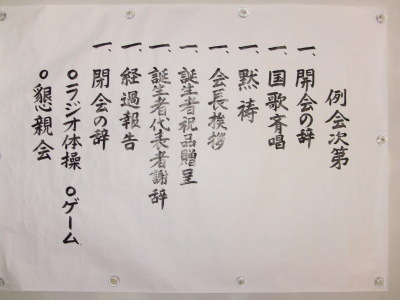 例会次第
一、開会の辞
一、国歌斉唱
一、黙祷
一、会長挨拶
一、誕生者祝品贈呈
一、誕生者代表者謝辞
一、経過報告
一、開会の辞
○ラジオ体操 ○ゲーム
○懇親会